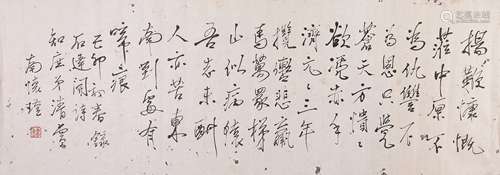 揚鞭慷慨
蒞中原不
為仇讐不
為恩只覺
蒼天方憒〻
欲憑赤手
濟元〻三年
攬轡悲羸
馬萬眾梯
山似病猿
吾志未酬
人亦苦東
南到處有
啼痕
己卯初春錄
石達開詩
弟清賞
南懷瑾